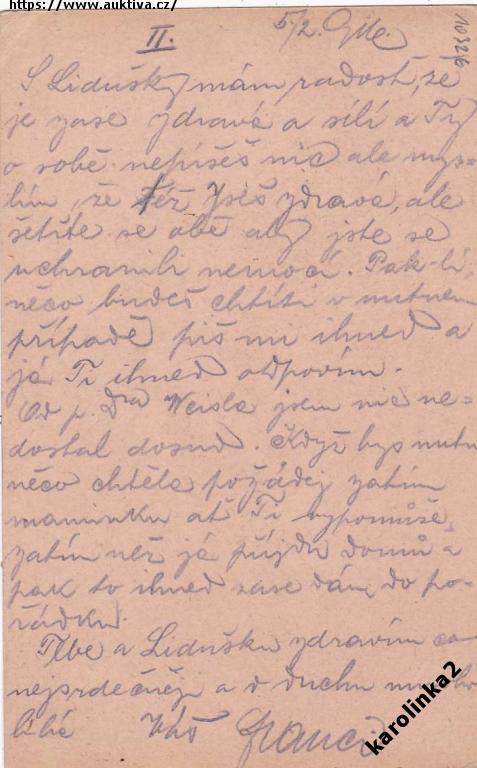 https://www.auktiva.cz/
II.
5/2.
10326
S Lidušky mám radost, že
je zase zdravá a sílí a Ty
o sobě nepíšeš nic ale mys-
lím, že též jseš zdravá, ale
šetřite se obě aby jste se
uchranili nemoci. Pak-li
něco budeš chtíti v nutném
případě piš mi ihned a
já Ti ihned odpovím.
Od p. Dra Weisla jsem nic ne-
dostal dosud. Když bys nutně
něco chtěla požádej zatím
maminku ať Ti vypomůže,
zatím než já přijdu domů a
pak to ihned zase dám do po-
řádku.
Tebe a Lidušku zdravím co
nejsrdečněji a v duchu mnoho
líbá Váš Franci
karolinka2